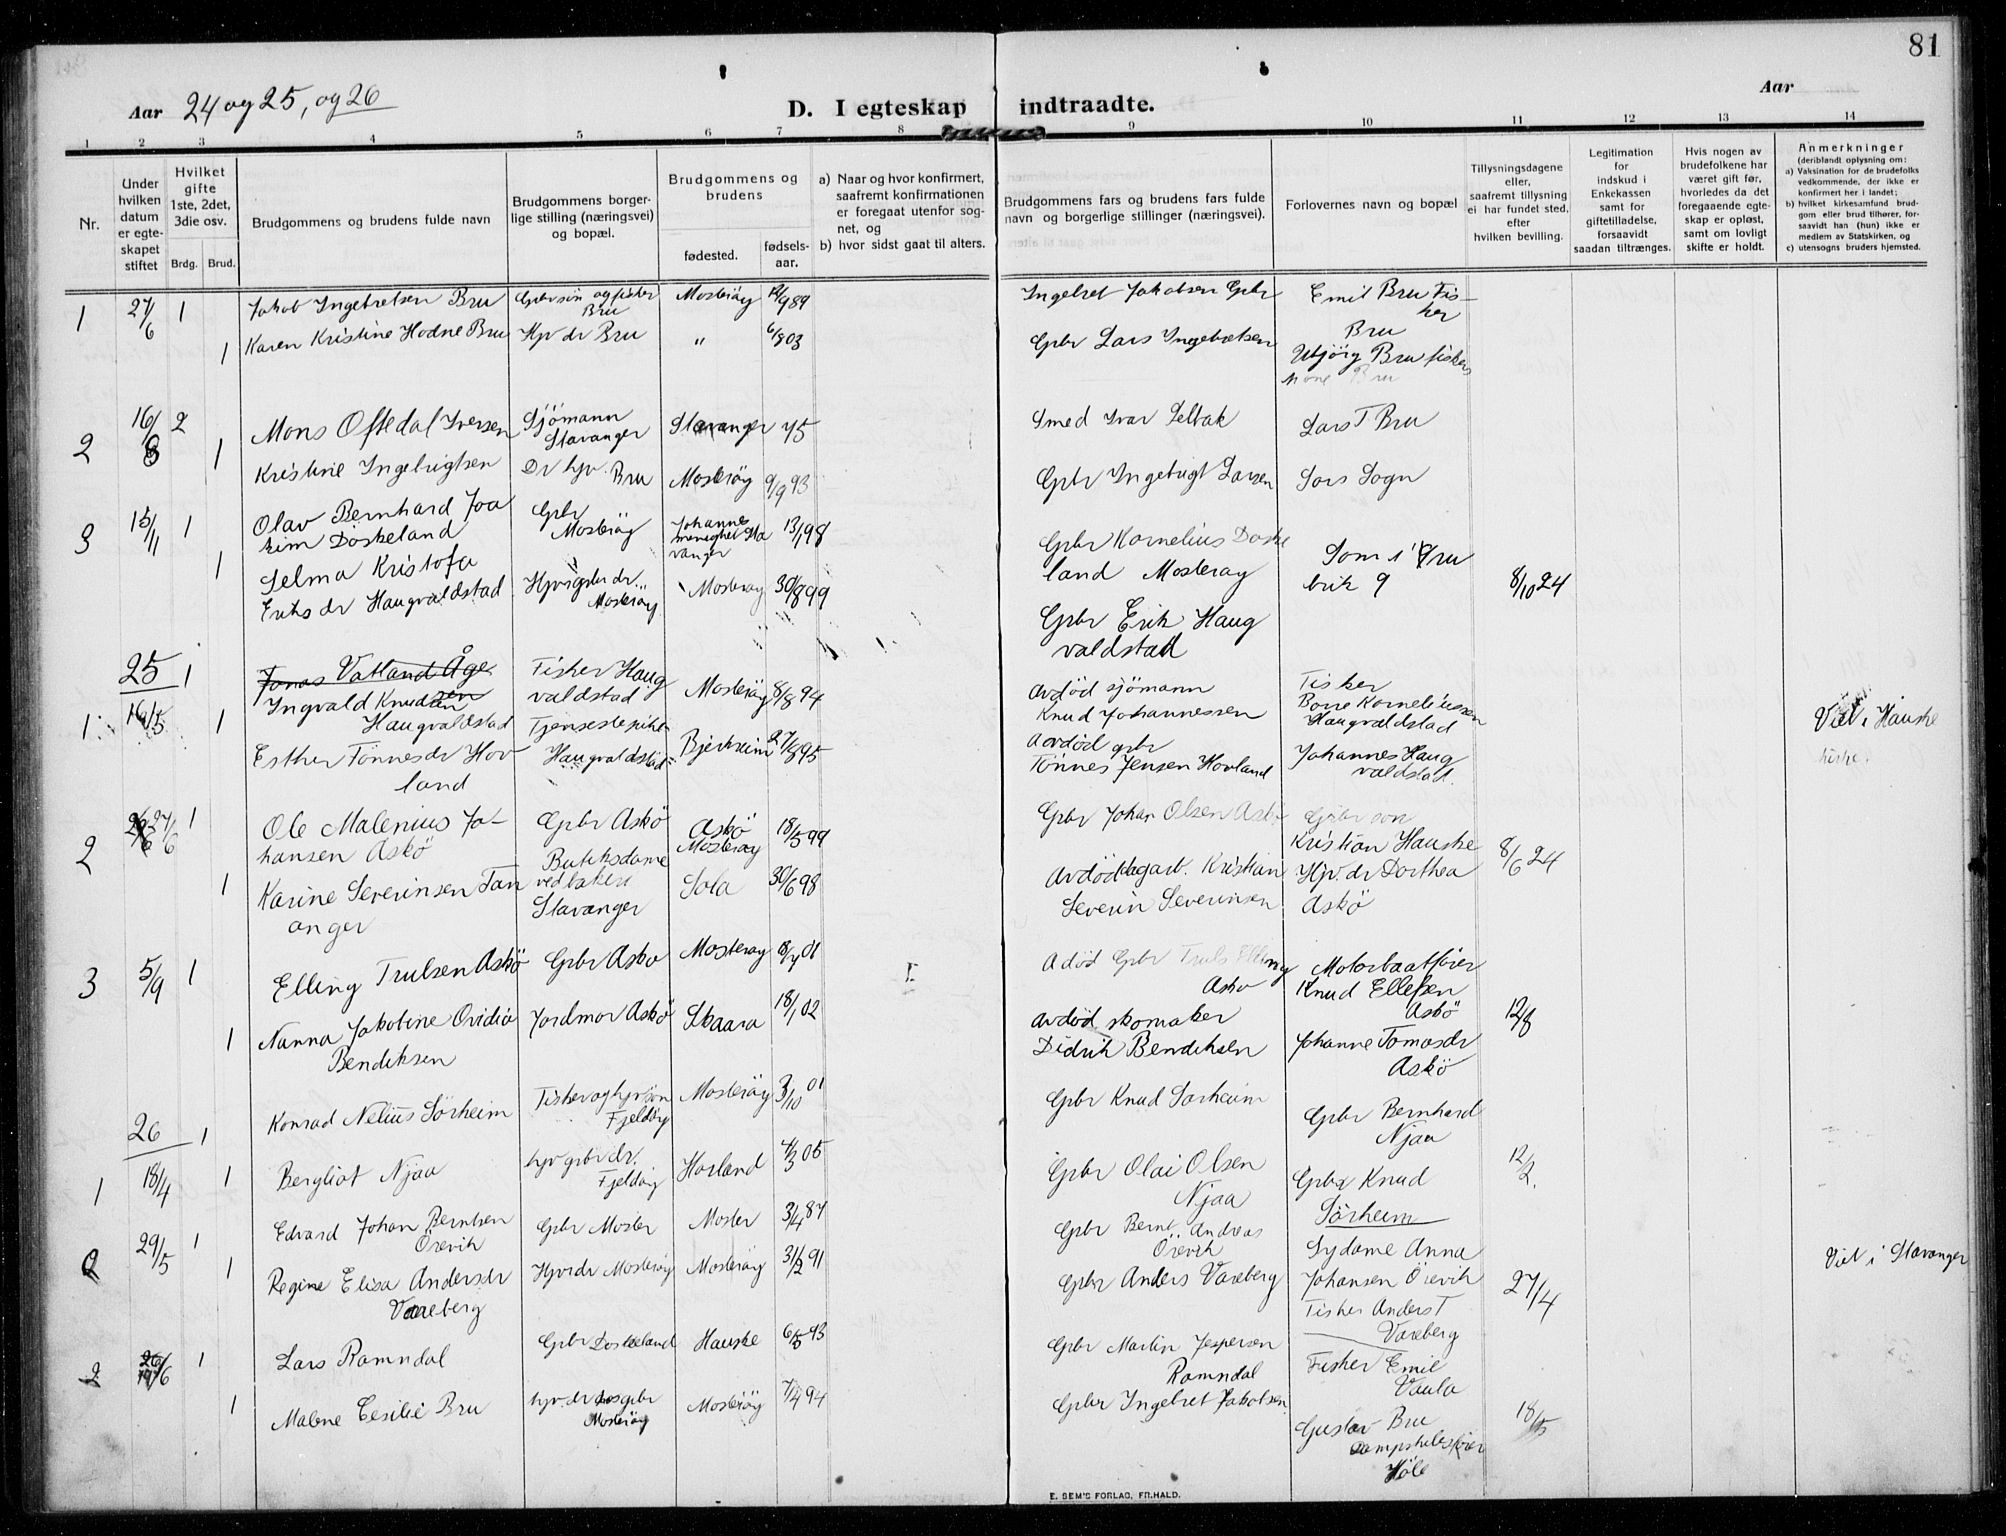 81
Aar 24 og 25, og 26
D. I egteskap indtraadte.
Aar
1 2 3 4 5 6 7 8 9 10 11 12 13 14
Nr.
Under hvilken datum er egteskapet stiftet
Hvilket gifte 1ste, 2det, 3die osv.
Brdg. Brud.
Brudgommens og brudens fulde navn
Brudgommens borgerlige stilling (næringsvei) og bopæl.
Brudgommens og brudens
fødested. fødselsaar.
a) Naar og hvor konfirmert, saafremt konfirmationen er foregaat utenfor sognet, og
b) hvor sidst gaat til alters.
Brudgommens fars og brudens fars fulde navn og borgerlige stillinger (næringsvei).
Forlovernes navn og bopæl
Tillysningsdagene eller, saafremt tillysning ei har fundet sted, efter hvilken bevilling.
Legitimation for indskud i Enkekassen samt for giftetilladelse, forsaavidt saadan tiltrænges.
Hvis nogen av brudefolkene har været gift før, hvorledes da det foregaaende egteskap er opløst, samt om lovligt skifte er holdt.
Anmerkninger
(deriblandt oplysning om:
a) Vaksination for de brudefolks vedkommende, der ikke er konfirmert her i landet;
b) hvilket kirkesamfund brudgom eller brud tilhører, forsaavidt han (hun) ikke er medlem av Statskirken, og
c) utensogns bruders hjemsted.
1 27/6 1 Jakob Ingebretsen Bru Gbr søn og fisker Bru Mosterøy 12/9 89 Ingebret Jakobsen Gbr Emil Bru Fisker Bru
1 Karen Kristine Hodne Bru Hjv dr Bru " 6/8 03 Gbr Lars Ingebretsen Bru fiskers kone Bru
2 16/8 2 Mons Oftedal Iversen Sjömann Stavanger Stavanger 75 Smed Ivar Selbak Lars T Bru
1 Kristine Ingebrigtsen Dr hjv. Bru Mosterøy 9/9 93 Gbr Ingebrigt Larsen Lars Sogn
3 15/11 1 Olav Bernhard Joakim Döskeland Gbr Mosteröy Johannes menighet Stavanger 13/1 98 Gbr Kornelius Doskeland Mosteray Som i rubrik 9 8/10 24
1 Selma Kristofa Eriks dr Haugvaldstad Hjv gbr dr. Mosteröy Mosteray 30/8 99 Gbr Erik Haugvaldstad
25
1 16/5 1 Jonas Vatland Åge Ingvald Knudsen Haugvaldstad Fisker Haugvaldstad Mosteröy 8/8 94 Avdöd sjömann Knud Johannessen Fisker Bore Korneliussen Haugvaldstad Viet i Hauske kirke.
1 Esther Tönnesdr Hovland Tjenestepike Haugvaldstad Bjerkreim 27/8 95 Avdöd gbr Tönnes Jensen Hovland Johannes Haugvaldstad
2 27/6 1 Ole Malenius Johansen Askö Gbr Askö Askö Mosteray 18/5 99 Gbr Johan Olsen Askö Gbr sön Kristian Hauske 8/6 24
1 Karine Severinsen Tananger Butiksdame ved bakeri Stavanger Sola 30/6 98 Avdöd dagarb. Kristian Severin Severinsen Hjv. dr Dorthea Askö
3 5/9 1 Elling Trulsen Askö Gbr Asko Mosteray 8/7 01 Adöd Gbr Truls Elling Asko Motorbaatförer Knud Ellefsen Askö 12/8
1 Nanna Jakobine Ovidia Bendiksen Jordmor Askö Skaara 18/1 02 Avdöd skomaker Didrik Bendiksen Johanne Tomasdr Askö
26
1 18/4 1 Konrad Nelius Sörheim Fisker og hjv sön Fjeldöy Mosteröy 3/10 01 Gbr Knud Sorheim Gbr Bernhard Njaa 12/2.
1 Bergliot Njaa hjv gbr dr. Fjeldöy Horland 4/3 05 Gbr Olai Olsen Njaa Gbr Knud Sörheim
2 29/5 1 Edvard Johan Berntsen Örevik Gbr Moster Moster 3/4 87 Gbr Bernt Andreas Örevik Sydame Anna Johansen Örevik 27/4 Viet i Stavanger
1 Regine Elisa Andersdr Vareberg Hjv dr Mosteröy Mosteröy 31/2 91 Gbr Anders Vareberg Fisker Anders T Vareberg
2 26/6 1 Lars Ramndal Gbr Doskeland Hauske 6/5 93 Gbr Martin Jespersen Ramndal Fisker Emil Vaula 18/5
1 Malene Cesilie Bru hjv. dr hos gbr Mosteröy Mosteröy 7/4 94 Gbr Ingebret Jakobsen Gustav Bru Dampskibsförer Höle
E. SEM'S FORLAG, FR.HALD.